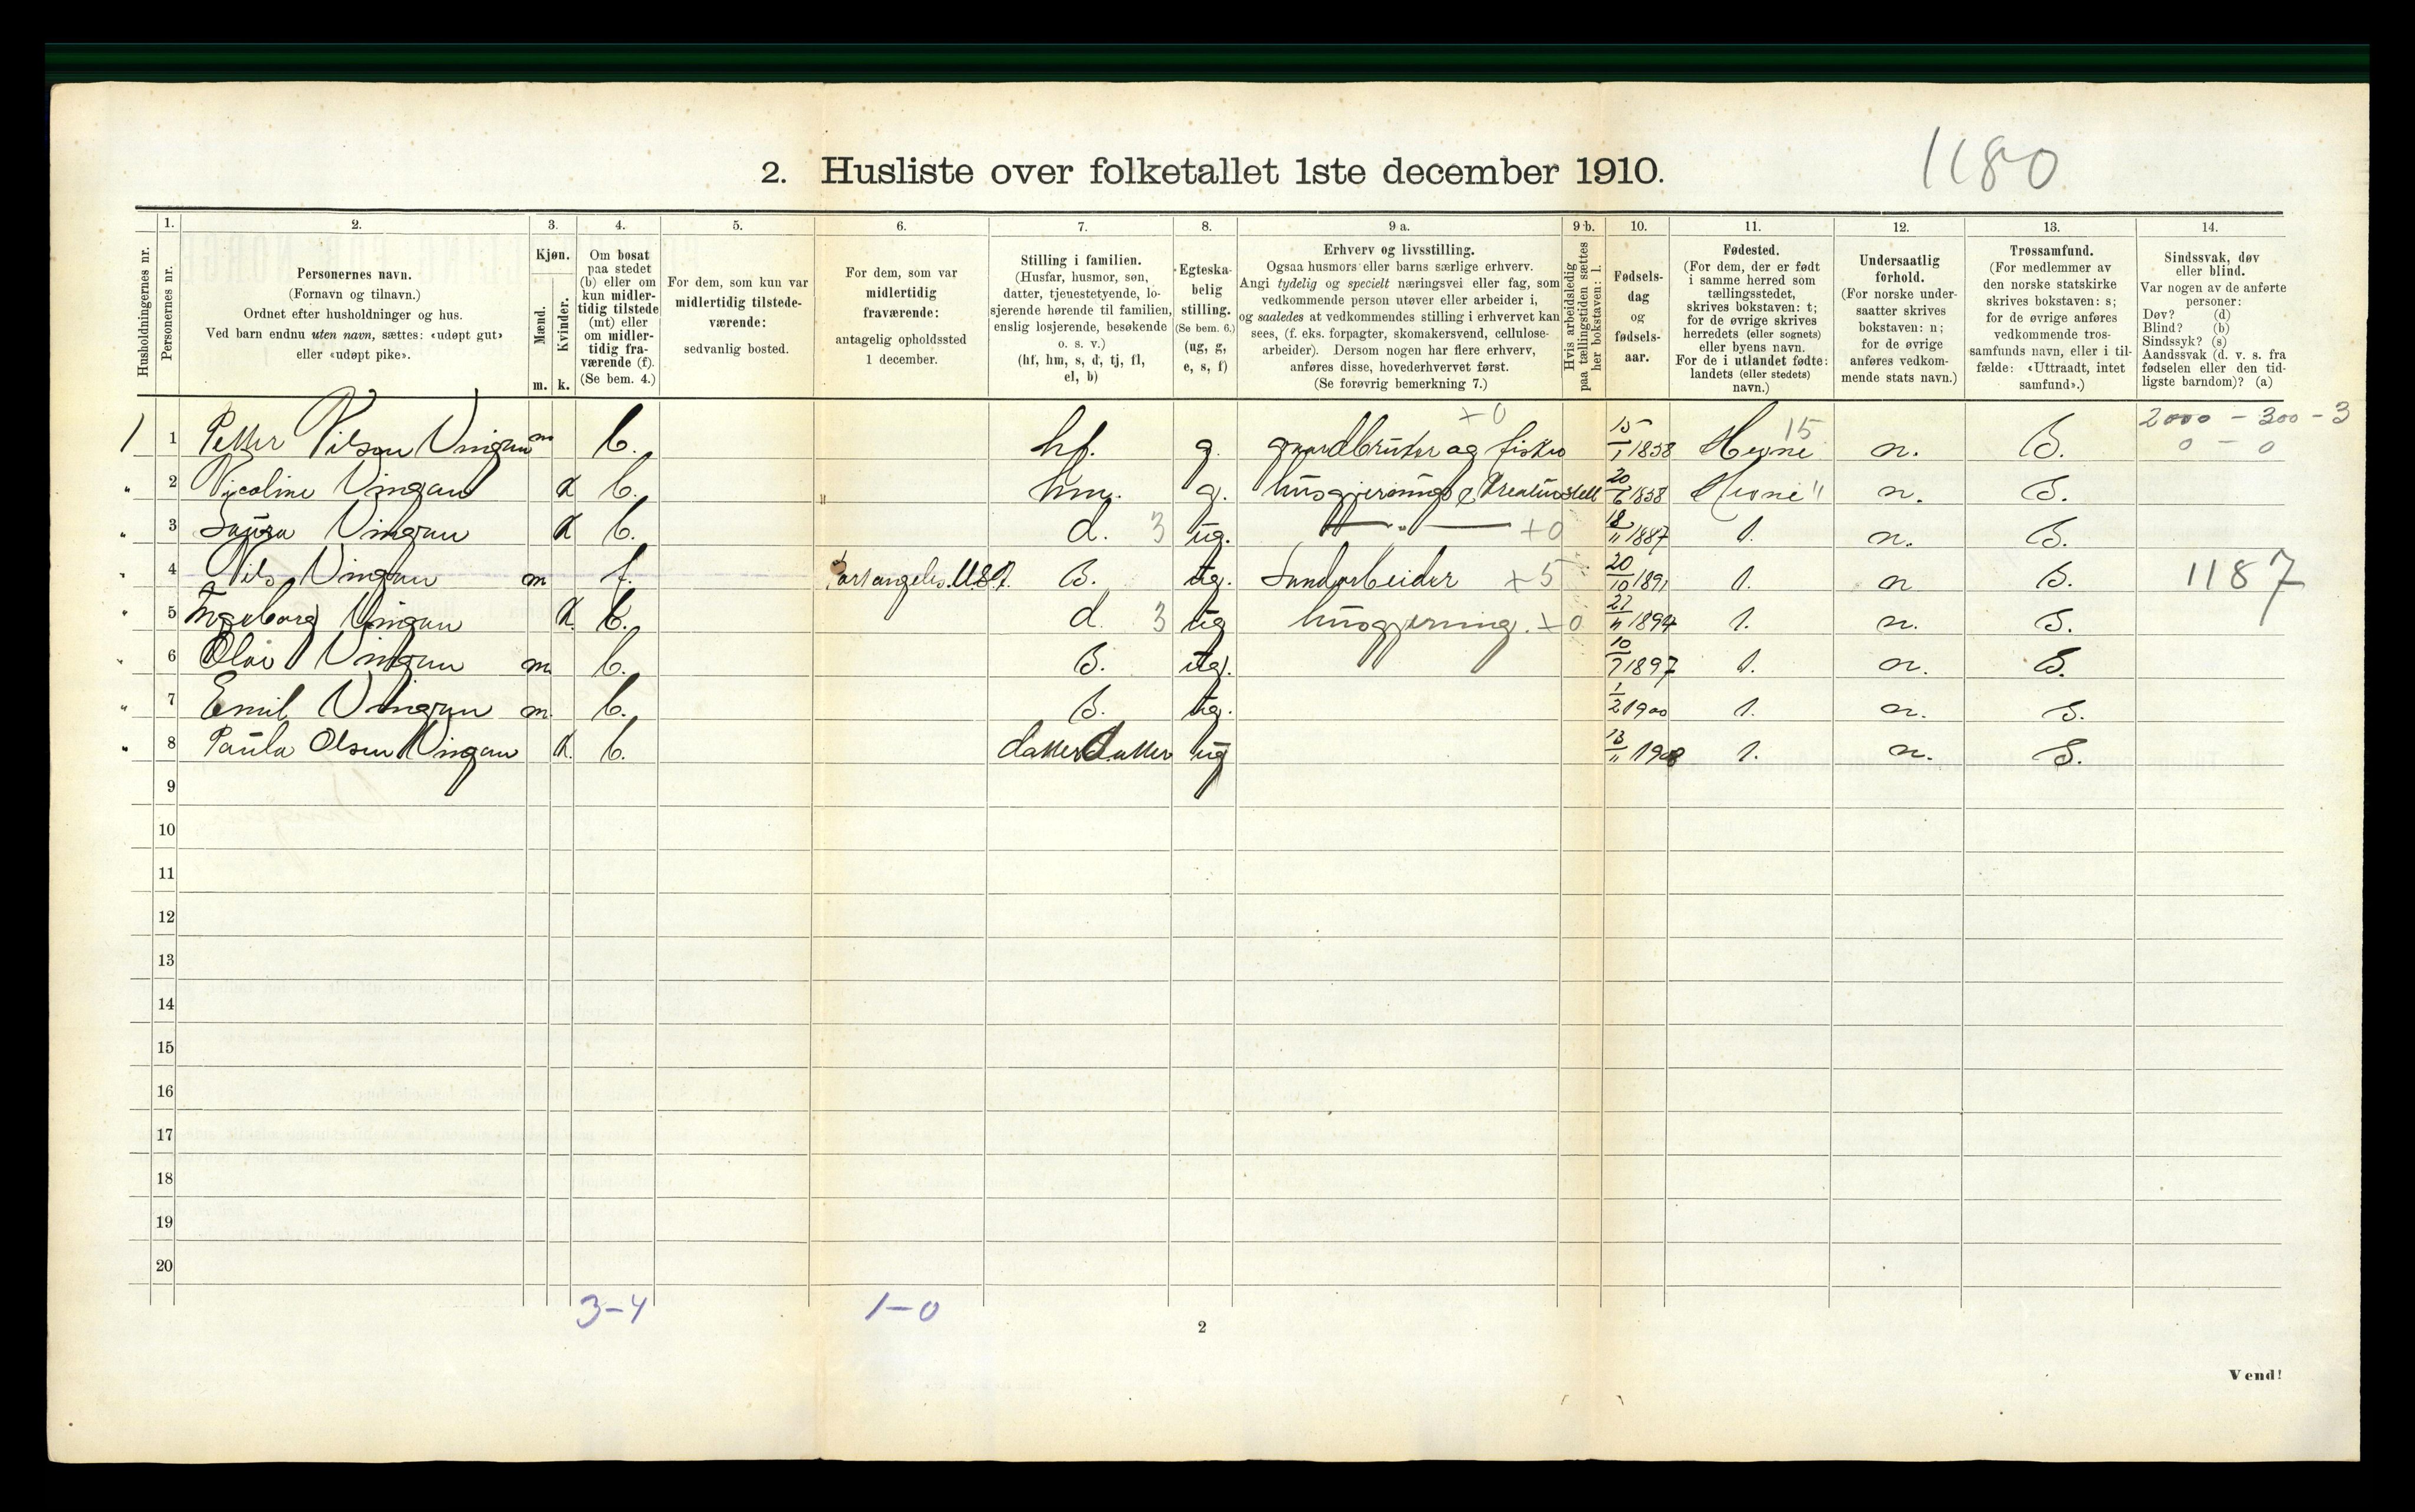 1180
2. Husliste over folketallet 1ste december 1910.
Husholdningernes nr.
1.
Personernes nr.
2.
Personernes navn.
(Fornavn og tilnavn.)
Ordnet efter husholdninger og hus.
Ved barn endnu uten navn, sættes: «udøpt gut»
eller «udøpt pike».
3.
Kjøn.
Mænd.
Kvinder.
m. k.
4.
Om bosat
paa stedet
(b) eller om
kun midler-
tidig tilstede
(mt) eller
om midler-
tidig fra-
værende (f).
(Se bem. 4.)
5.
For dem, som kun var
midlertidig tilstede-
værende:
sedvanlig bosted.
6.
For dem, som var
midlertidig
fraværende:
antagelig opholdssted
1 december.
7.
Stilling i familien.
(Husfar, husmor, søn,
datter, tjenestetyende, lo-
sjerende hørende til familien,
enslig losjerende, besøkende
o. s. v.)
(hf, hm, s, d, tj, fl,
el, b)
8.
Egteska-
belig
stilling.
(Se bem. 6.)
(ug, g,
e, s, f)
9 a.
Erhverv og livsstilling.
Ogsaa husmors eller barns særlige erhverv.
Angi tydelig og specielt næringsvei eller fag, som
vedkommende person utøver eller arbeider i,
og saaledes at vedkommendes stilling i erhvervet kan
sees, (f. eks. forpagter, skomakersvend, cellulose-
arbeider). Dersom nogen har flere erhverv,
anføres disse, hovederhvervet først.
(Se forøvrig bemerkning 7.)
9 b.
Hvis arbeidsledig
paa tællingstiden sættes
her bokstaven: l.
10.
Fødsels-
dag
og
fødsels-
aar.
11.
Fødested.
(For dem, der er født
i samme herred som
tællingsstedet,
skrives bokstaven: t;
for de øvrige skrives
herredets (eller sognets)
eller byens navn.
For de i utlandet fødte:
landets (eller stedets)
navn.)
12.
Undersaatlig
forhold.
(For norske under-
saatter skrives
bokstaven: n;
for de øvrige
anføres vedkom-
mende stats navn.)
13.
Trossamfund.
(For medlemmer av
den norske statskirke
skrives bokstaven: s;
for de øvrige anføres
vedkommende tros-
samfunds navn, eller i til-
fælde: «Uttraadt, intet
samfund».)
14.
Sindssvak, døv
eller blind.
Var nogen av de anførte
personer:
Døv? (d)
Blind? (b)
Sindssyk? (s)
Aandssvak (d. v. s. fra
fødselen eller den tid-
ligste barndom)? (a)
+0 15 2000 - 300 - 3
1 1 Petter Nilsen Vingan m b. hf. g. gaardbruker og fisker 15/1 1858 Hevne n. S. 0 - 0
" 2 Nicoline Vingan k b. " hm. g. husgjernings & Kreaturstell 20/6 1858 Hevne " n. S.
" 3 Laura Vingan k b. d. 3 ug. — " — +0 18/11 1887 t. n. S.
" 4 Nils Vingan m f. Portangeles. U.S.A. S. ug. Sundarbeider +5 20/10 1891 t. n S. 1187
" 5 Ingeborg Vingan k. b. d. 3 ug husgjerning. +0 27/11 1894 t. n. S.
" 6 Olai Vingan m b. S. ug. 10/7 1897 t. n. S.
" 7 Emil Vingan m. b. S. ug. 1/2 1900 t. n. S.
" 8 Paula Olsen Vingan k. b. datterdatter ug 13/11 1908 t. n. S.
9
10
11
12
13
14
15
16
17
18
19
20
3-4 1-0
2
Vend!